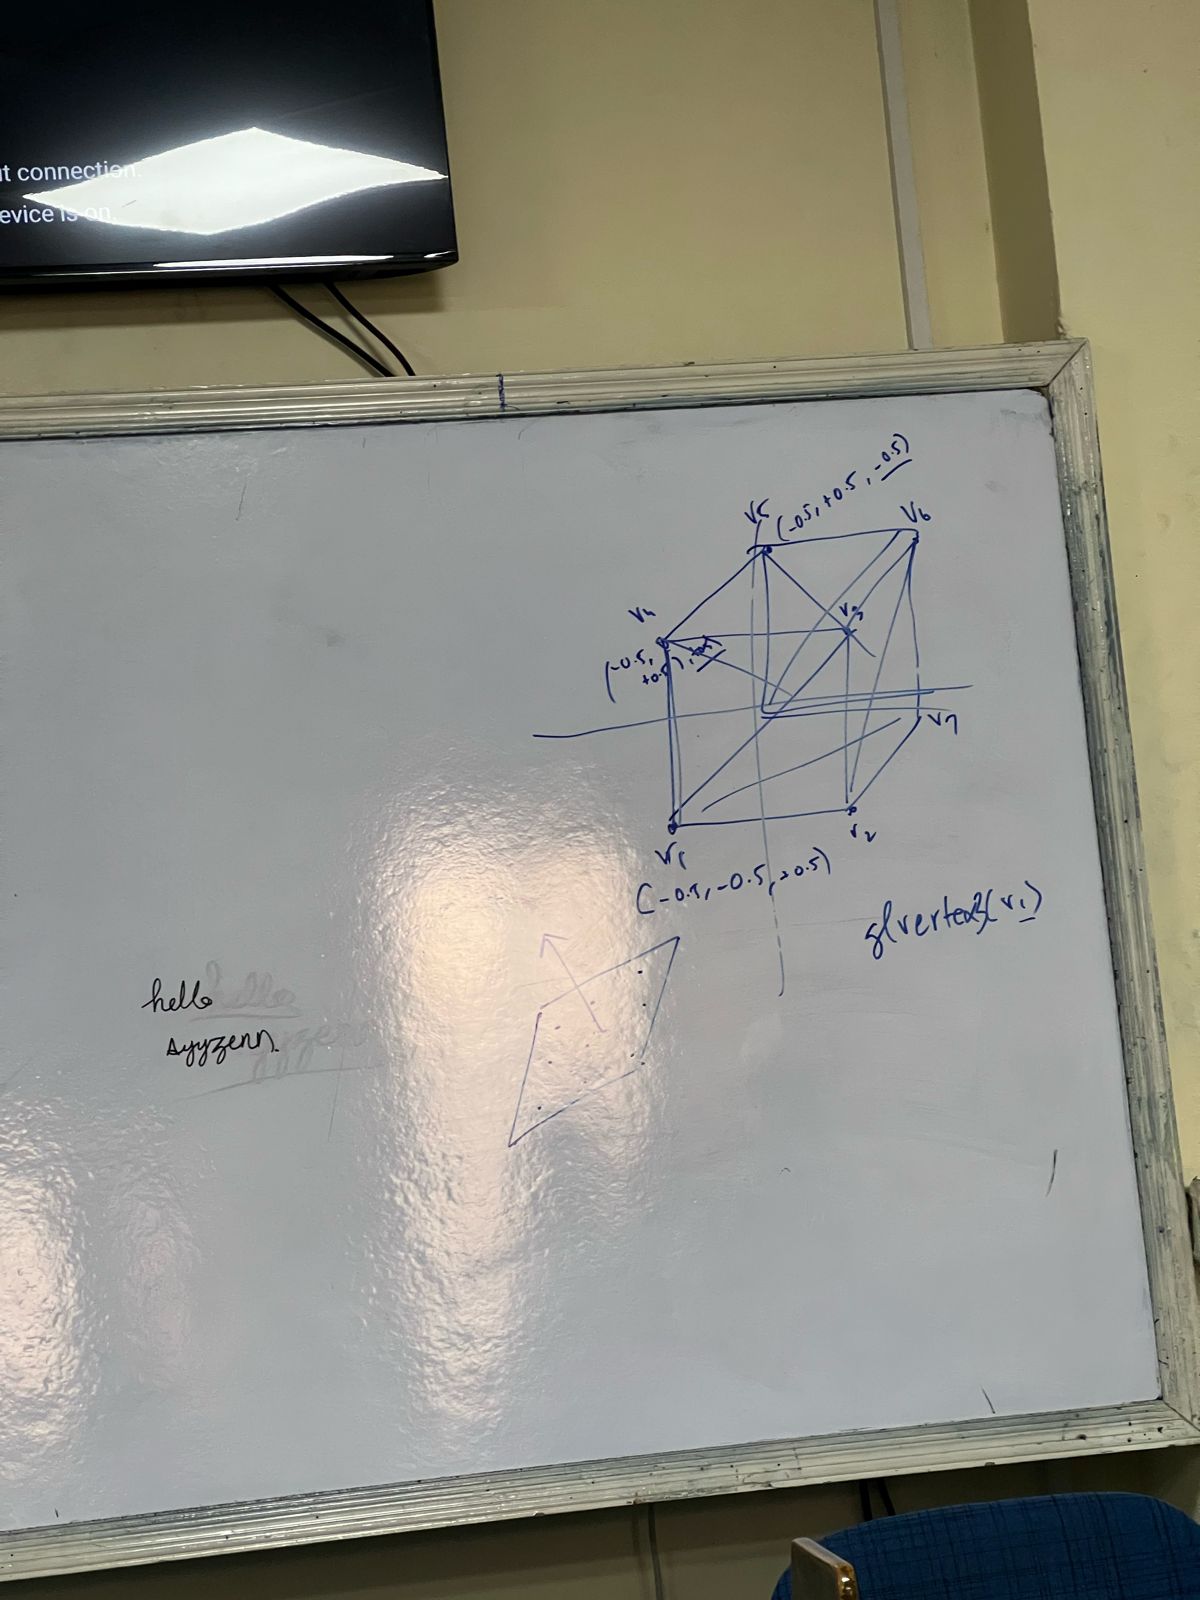 ut connection.
evice is on.
V5
(-0.5, +0.5, -0.5)
V6
V4
V3
(-0.5,
+0.5, +0.5)
V7
V1
V2
(-0.5, -0.5, +0.5)
glvertex3(v1)
hello
Ayyzenn